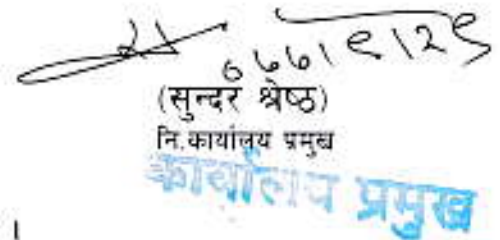 ०७७।९।२९
(सुन्दर श्रेष्ठ)
नि.कार्यालय प्रमुख
कार्यालय प्रमुख